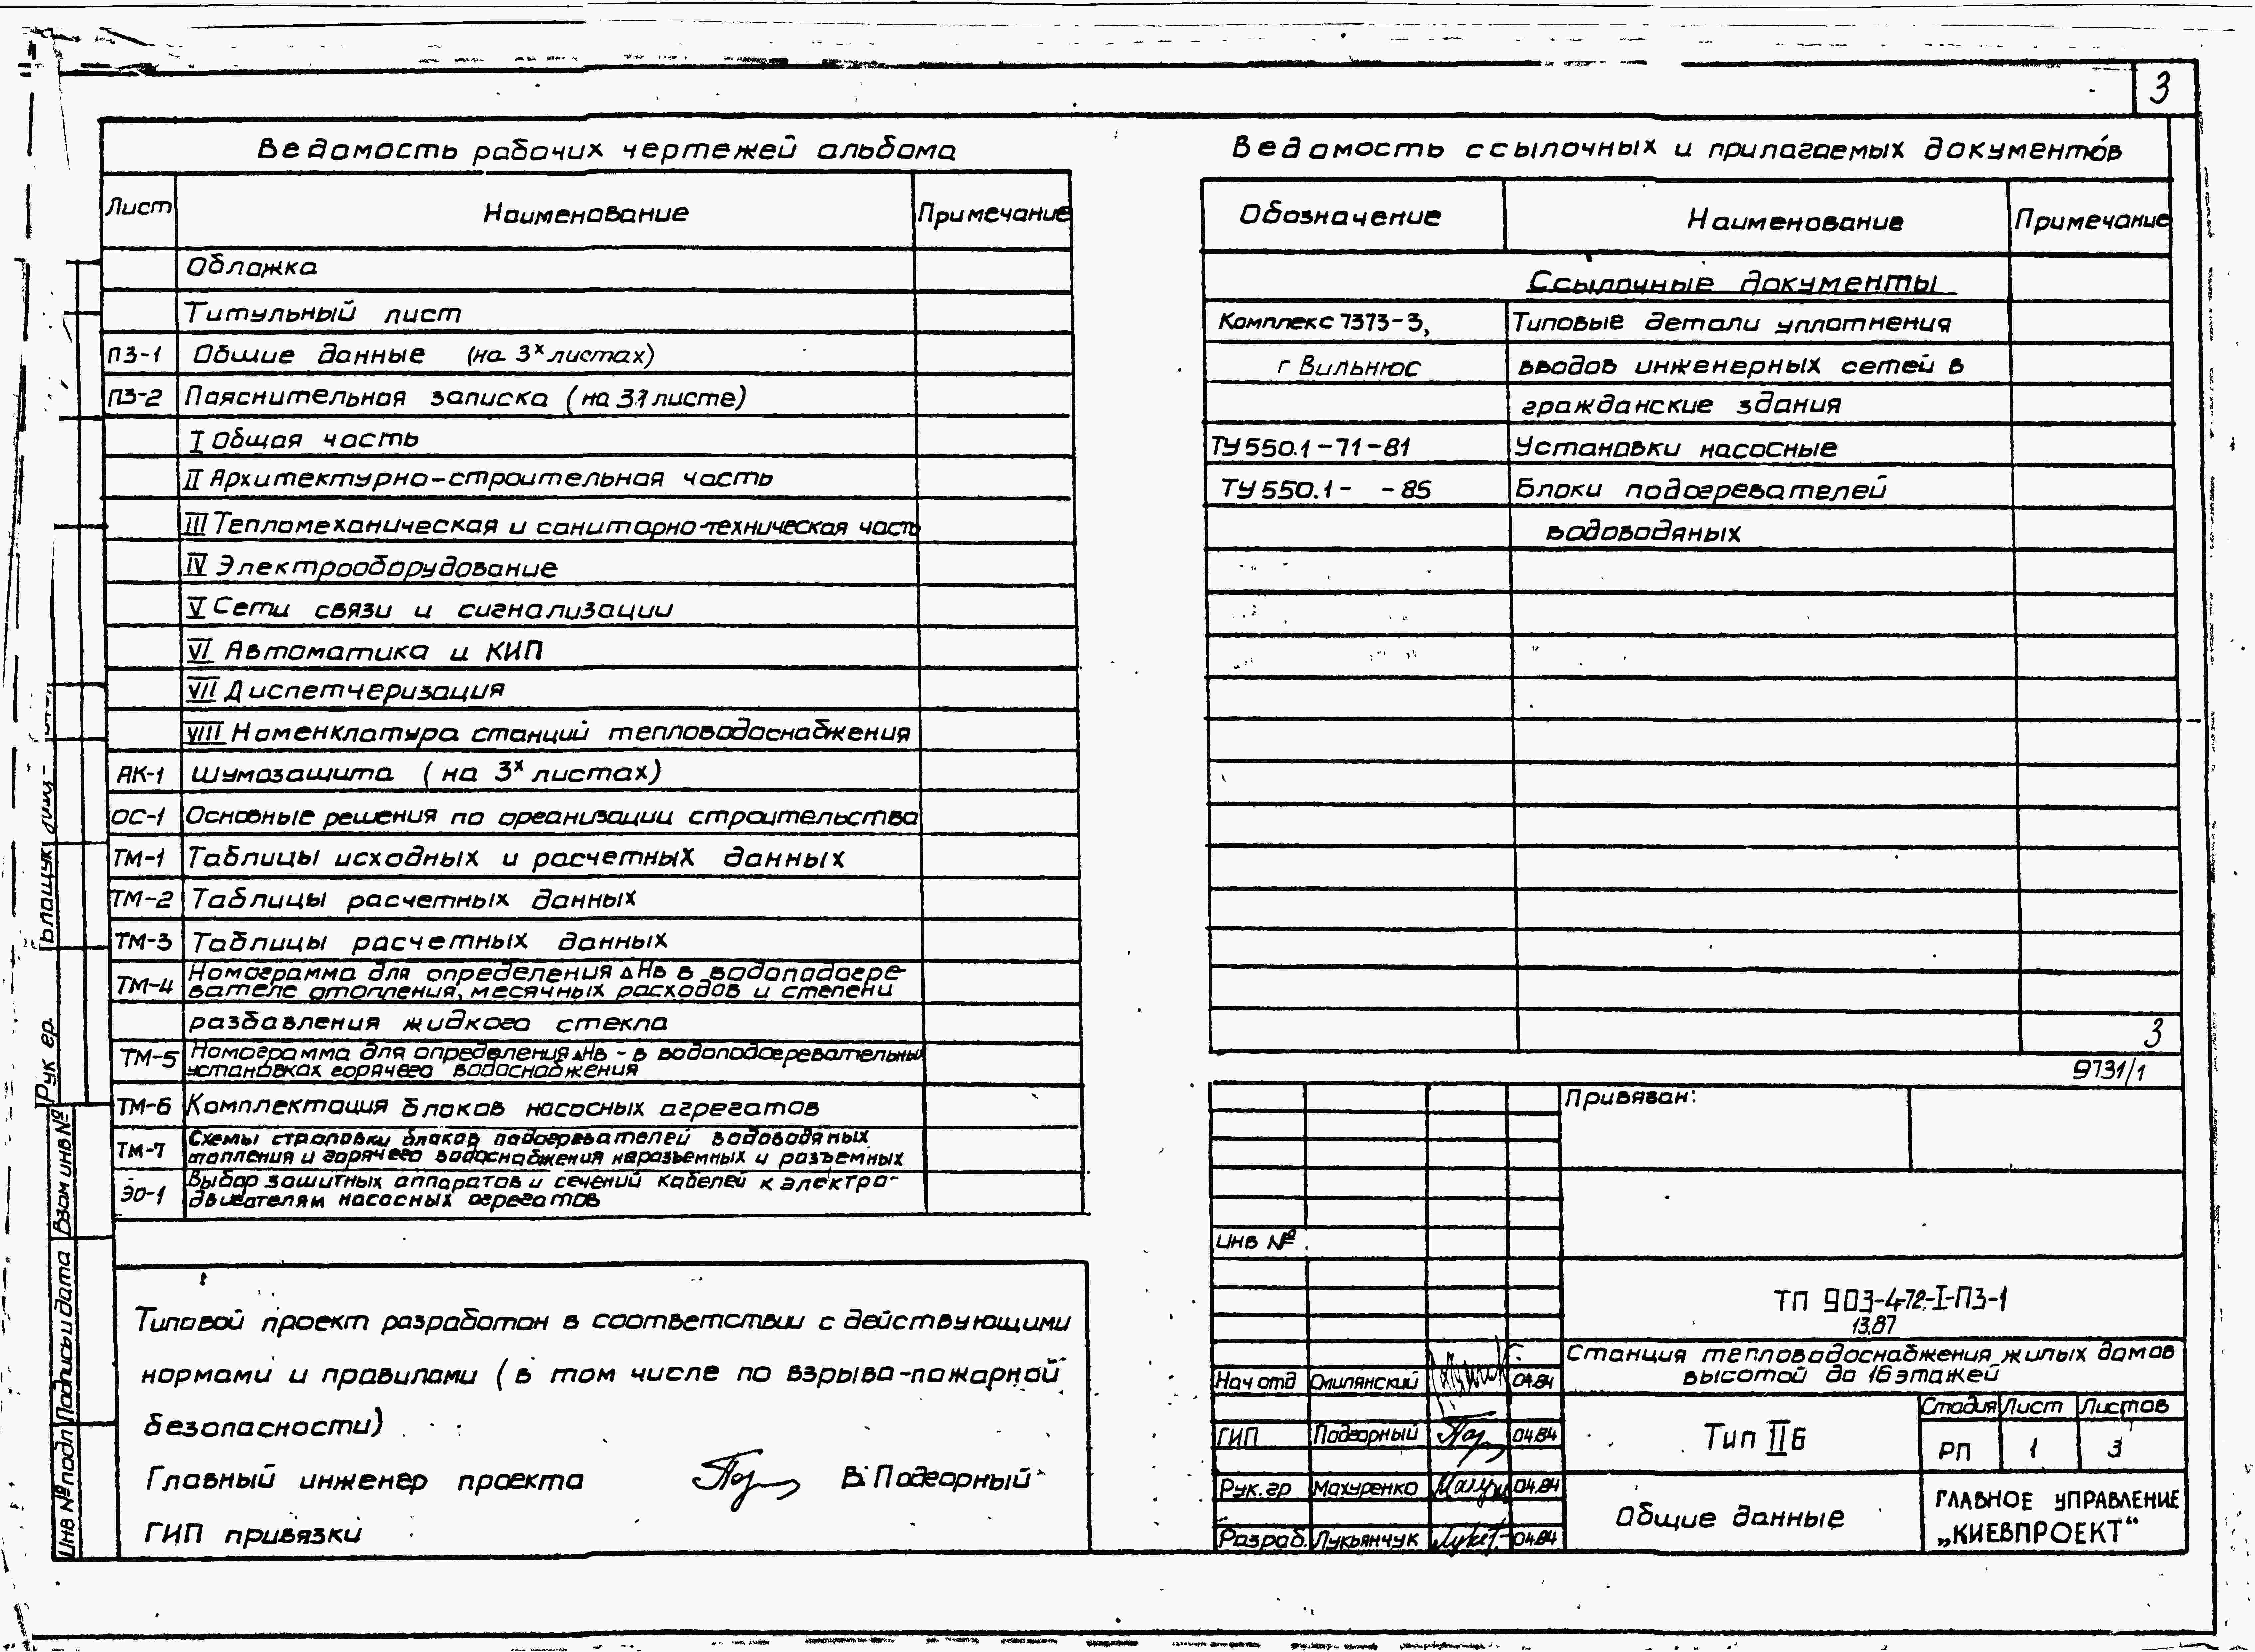 3
Ведомость рабочих чертежей альбома
Лист Наименование Примечание
Обложка
Титульный лист
ПЗ-1 Общие данные (на 3х листах)
ПЗ-2 Пояснительная записка (на 31 листе)
I Общая часть
II Архитектурно-строительная часть
III Тепломеханическая и санитарно-техническая часть
IV Электрооборудование
V Сети связи и сигнализации
VI Автоматика и КИП
VII Диспетчеризация
VIII Номенклатура станций тепловодоснабжения
АК-1 Шумозащита (на 3х листах)
ОС-1 Основные решения по организации строительства
ТМ-1 Таблицы исходных и расчетных данных
ТМ-2 Таблицы расчетных данных
ТМ-3 Таблицы расчетных данных
ТМ-4 Номограмма для определения ΔНв в водоподогре-
вателе отопления, месячных расходов и степени
разбавления жидкого стекла
ТМ-5 Номограмма для определения ΔНв - в водоподогревательных
установках горячего водоснабжения
ТМ-6 Комплектация блоков насосных агрегатов
ТМ-7 Схемы строповки блоков подогревателей водоводяных
отопления и горячего водоснабжения неразъемных и разъемных
ЭО-1 Выбор защитных аппаратов и сечений кабелей к электро-
двигателям насосных агрегатов
Типовой проект разработан в соответствии с действующими
нормами и правилами (в том числе по взрыво-пожарной
безопасности)
Главный инженер проекта В. Подгорный
ГИП привязки
Ведомость ссылочных и прилагаемых документов
Обозначение Наименование Примечание
Ссылочные документы
Комплекс 7373-3, Типовые детали уплотнения
г Вильнюс вводов инженерных сетей в
гражданские здания
ТУ 550.1-71-81 Установки насосные
ТУ 550.1- -85 Блоки подогревателей
водоводяных
3
9731/1
Привязан:
Инв №
ТП 903-4-72-I-ПЗ-1
13.87
Станция тепловодоснабжения жилых домов
высотой до 16 этажей
Нач отд Смилянский 04.84
ГИП Подгорный 04.84
Рук. гр Махуренко 04.84
Разраб. Лукьянчук 04.84
Тип IIБ
Стадия Лист Листов
РП 1 3
Общие данные
ГЛАВНОЕ УПРАВЛЕНИЕ
„КИЕВПРОЕКТ“
Рук гр.
Взам инв №
Подпись и дата
Инв № подл